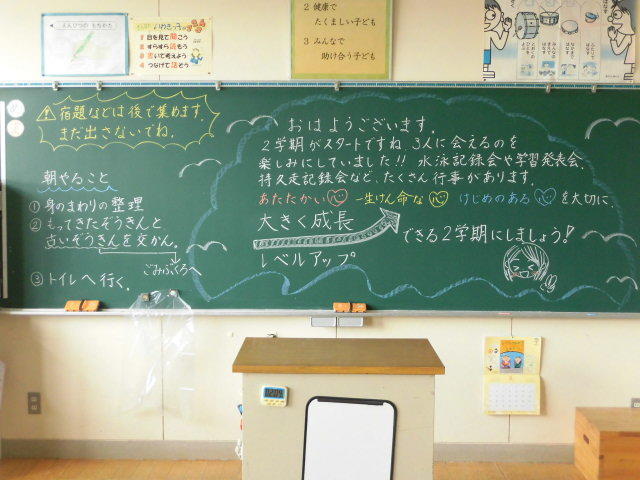 えんぴつの もちかた
1 目を見て聞こう
2 すらすら読もう
3 書いて考えよう
4 つなげて話そう
2 健康で
たくましい子ども
3 みんなで
助け合う子ども
宿題などは後で集めます。
まだ出さないでね。
朝やること
① 身のまわりの整理
② もってきたぞうきんと
古いぞうきんを交かん。
ごみぶくろへ
③ トイレへ行く。
おはようございます。
2学期がスタートですね 3人に会えるのを
楽しみにしていました!! 水泳記録会や学習発表会、
持久走記録会など、たくさん行事があります。
あたたかい心 一生けん命な心 けじめのある心を大切に、
大きく成長
レベルアップ
できる2学期にしましょう!